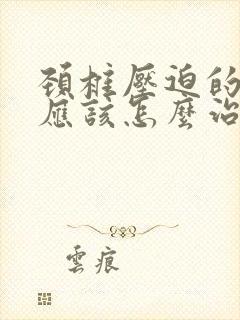 頚椎壓迫的
應該怎麼治
雲痕